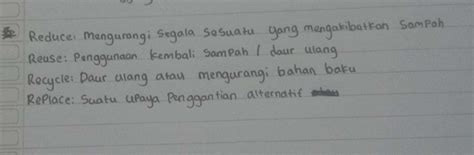 Reduce: Mengurangi Segala Sesuatu yang mengakibatkan Sampah
Reuse: Penggunaan Kembali Sampah / daur ulang
Recycle: Daur ulang atau mengurangi bahan baku
Replace: Suatu upaya Penggantian alternatif